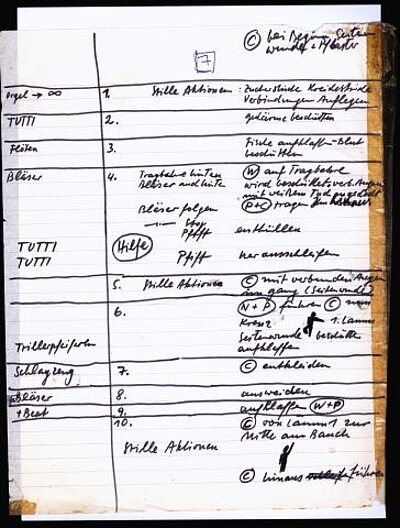 © bei Beginn Seiten
wunde + Pflaster
7
Orgel → ∞ 1. Stille Aktionen: Zuckerstücke Kreidestücke
Verbindungen Auflegen
TUTTI 2. gedärme beschütten
Flöten 3. Fische aufklaffen - Blut
beschütten
Bläser 4. Tragbahre hinten W auf Tragbahre
Bläser auch hinten wird beschüttet verb. Augen
mit weißem Tuch zugedeckt
Bläser folgen P+C tragen
Stop
Pfiff enthüllen
TUTTI Hilfe
TUTTI Pfiff herausschleifen
5. Stille Aktionen © mit verbundenen Augen
(Seitenwunde)
6. N + P führen © zum
Kreuz 1. Lamm
Seitenwunde beschütten
Trillerpfeifen aufklaffen
Schlagzeug 7. © entkleiden
Bläser 8. ausweiden
+ Beat 9. aufklaffen W+P
10. © von Lamm 1 zur
Mitte am Bauch
Stille Aktionen
© hinaus führen